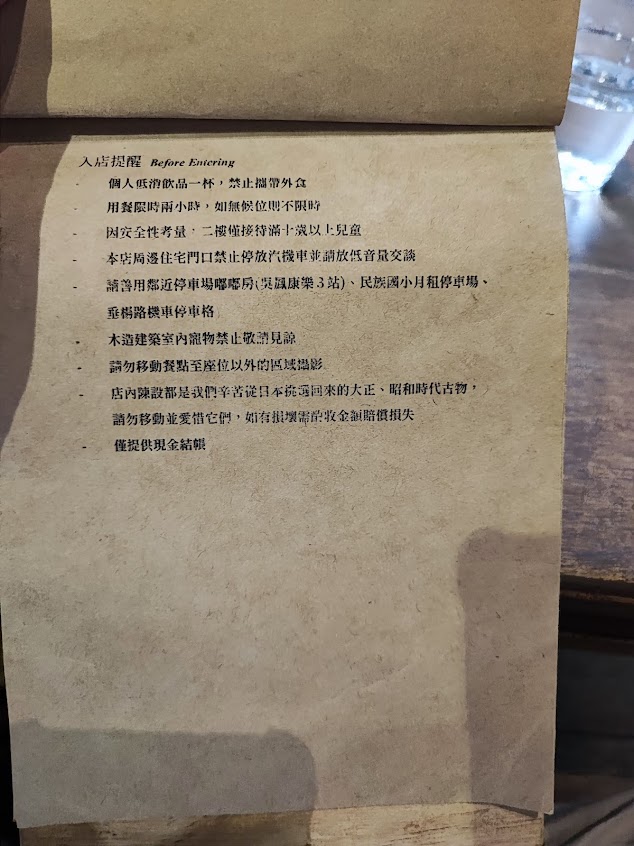 入店提醒 Before Entering
- 個人低消飲品一杯，禁止攜帶外食
- 用餐限時兩小時，如無候位則不限時
- 因安全性考量，二樓僅接待滿十歲以上兒童
- 本店周邊住宅門口禁止停放汽機車並請放低音量交談
- 請善用鄰近停車場嘟嘟房(吳鳳康樂3站)、民族國小月租停車場、
垂楊路機車停車格
- 木造建築室內寵物禁止敬請見諒
- 請勿移動餐點至座位以外的區域攝影
- 店內陳設都是我們辛苦從日本挑選回來的大正、昭和時代古物，
請勿移動並愛惜它們，如有損壞需酌收金額賠償損失
- 僅提供現金結帳